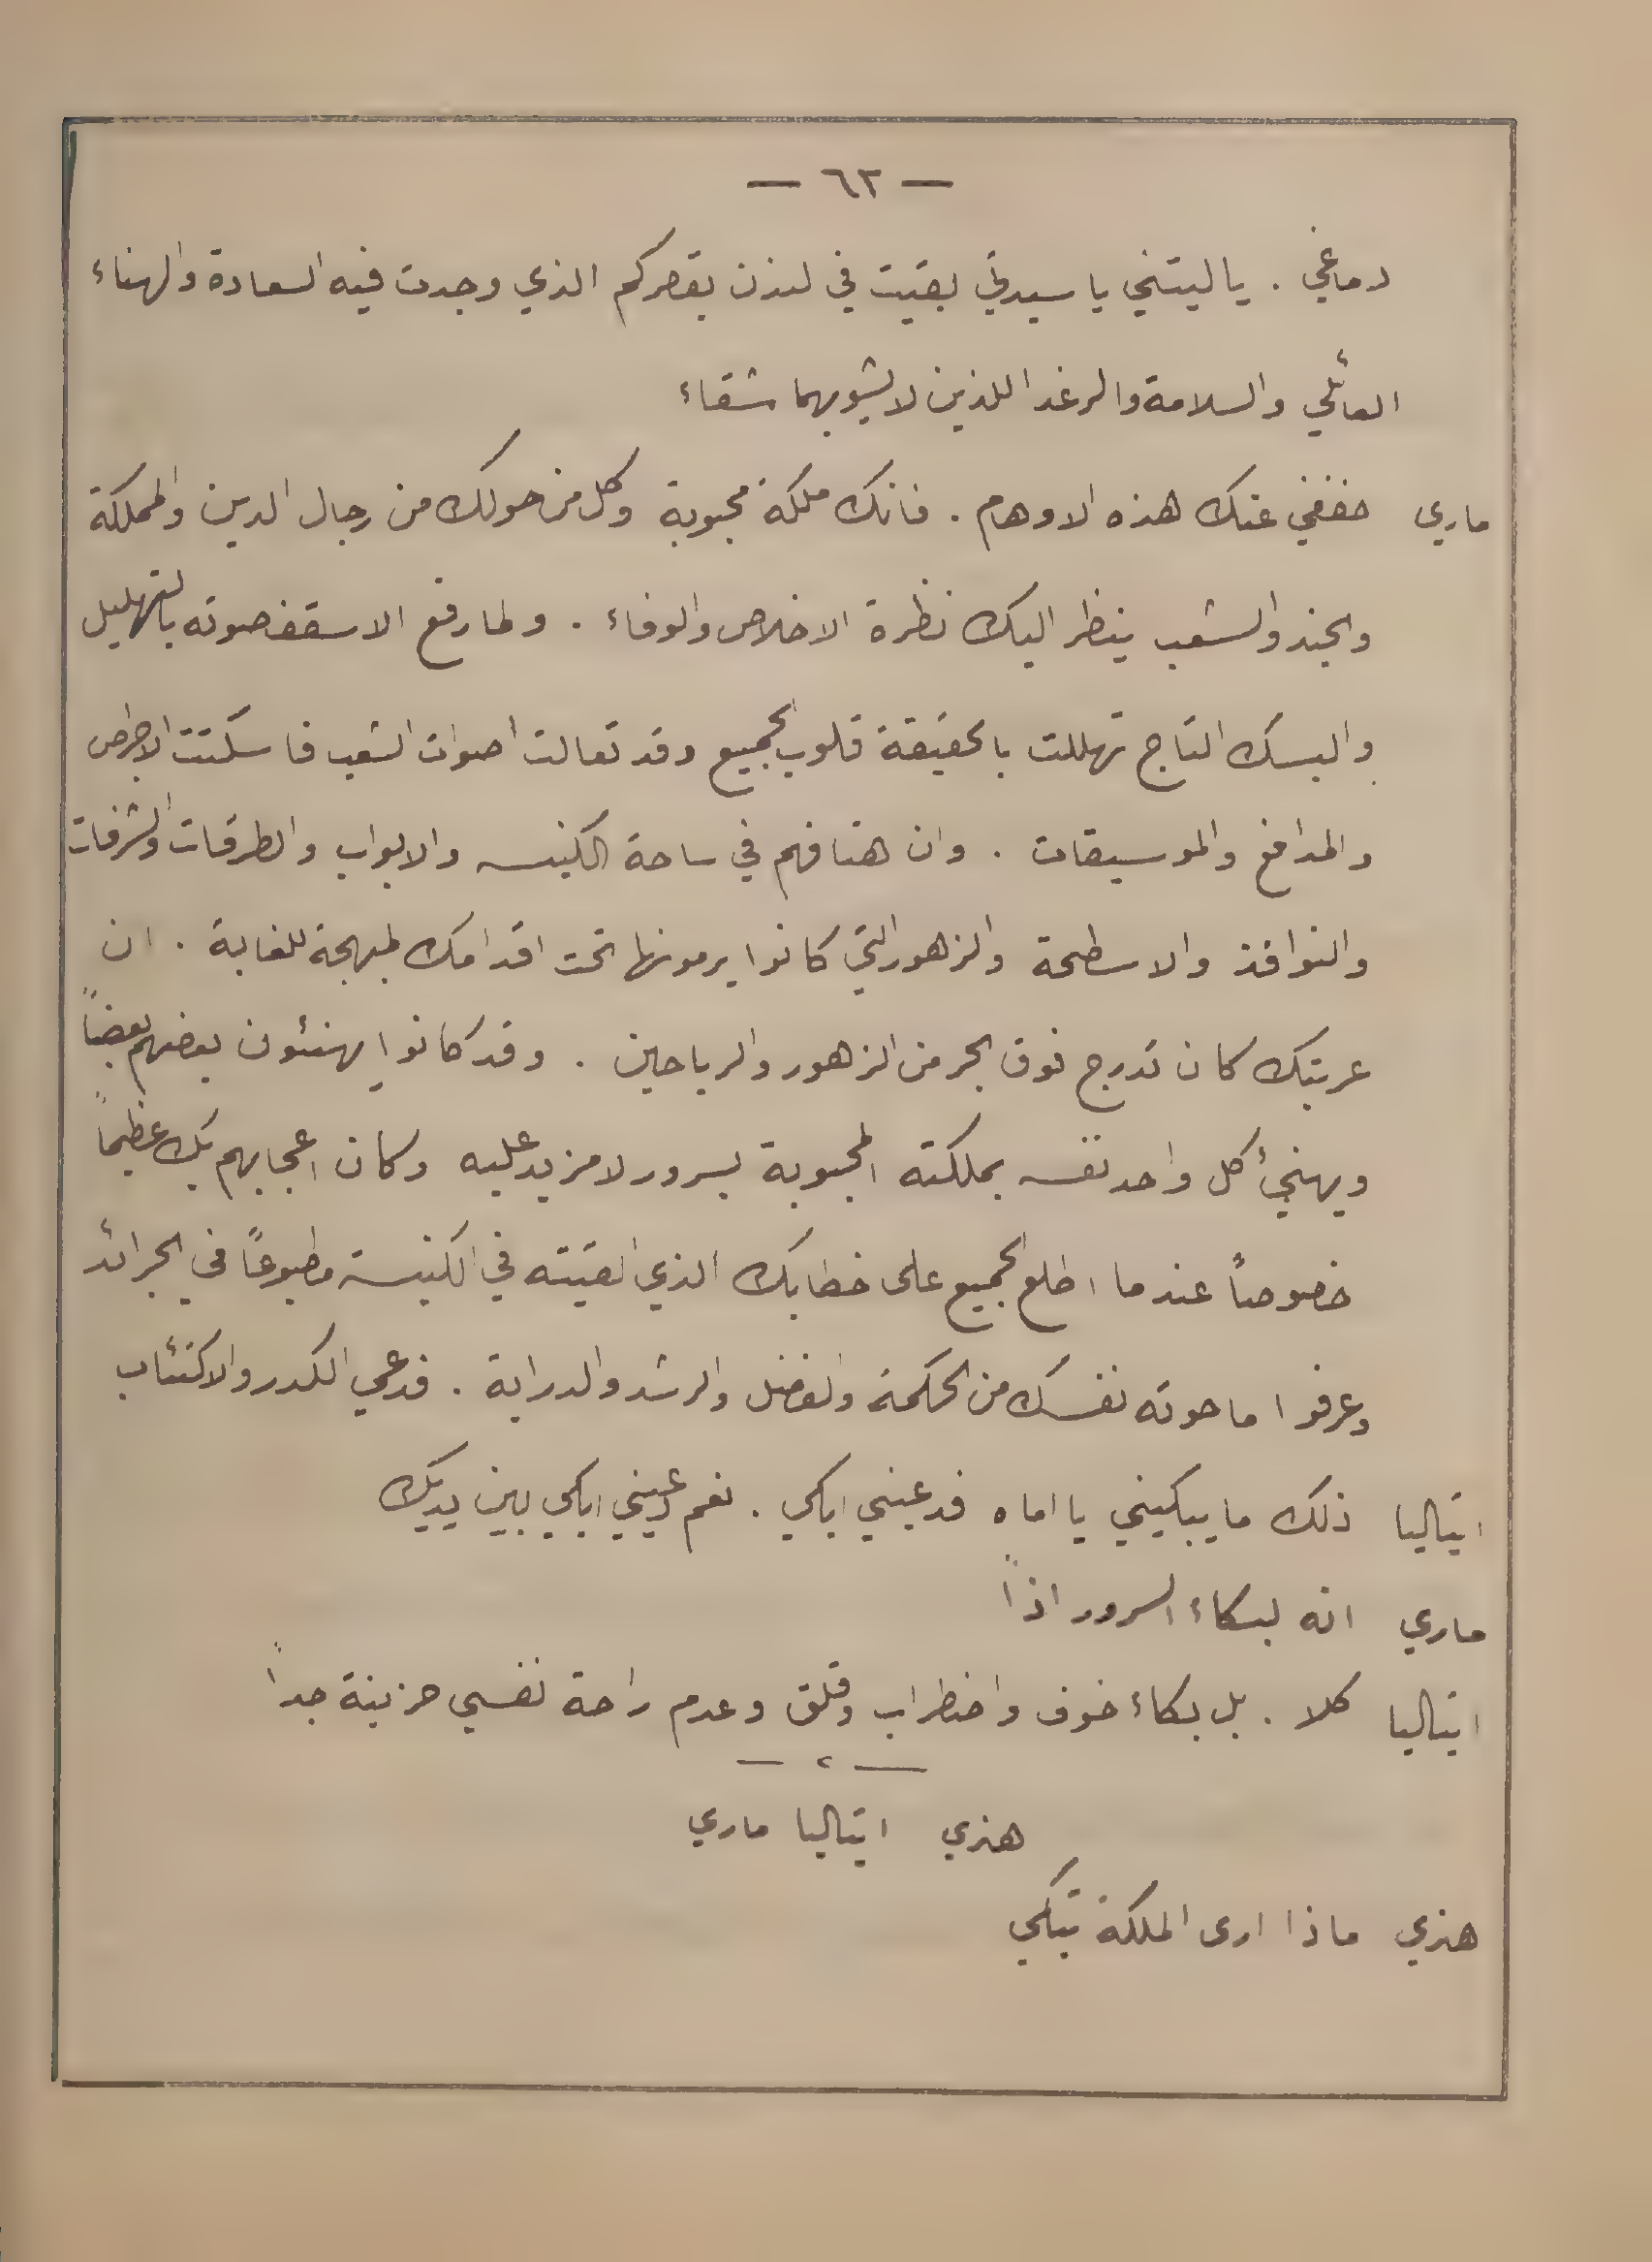 — ٦٢ —
دماغي . يا ليتني يا سيدتي بقيت في لندن بقصركم الذي وجدت فيه السعادة والهناء
العائلي والسلامة والرغد اللذين لا يشوبهما شقاء
ماري خففي عنك هذه الاوهام . فانك ملكة محبوبة وكل من حولك من رجال الدين والمملكة
والجند والشعب ينظر اليك نظرة الاخلاص والوفاء . ولما رفع الاسقف صوته بالتهليل
والبسك التاج تهللت بالحقيقة قلوب الجميع وقد تعالت اصوات الشعب فاسكتت الاجراس
والمدافع والموسيقات . وان هتافهم في ساحة الكنيسه والابواب والطرقات والشرفات
والنوافذ والاسطحة والزهور التي كانوا يرمونها تحت اقدامك لمبهجة للغاية . ان
عربتك كان تدرج فوق بحر من الزهور والرياحين . وقد كانوا يهنئون بعضهم بعضاً
ويهنئ كل واحد نفسه بملكته المحبوبة بسرور لا مزيد عليه وكان اعجابهم بك عظيماً
خصوصاً عندما اطلع الجميع على خطابك الذي القيته في الكنيسة مطبوعاً في الجرائد
وعرفوا ما حوته نفسك من الحكمة والفضل والرشد والدراية . فدعي الكدر والاكتئاب
ايتاليا ذلك ما يبكيني يا اماه فدعيني ابكي . نعم دعيني ابكي بين يديك
ماري انه لبكاء السرور اذاً
ايتاليا كلا . بل بكاء خوف واضطراب وقلق وعدم راحة نفسي حزينة جداً
— ٢ —
هنري ايتاليا ماري
هنري ماذا ارى الملكة تبكي